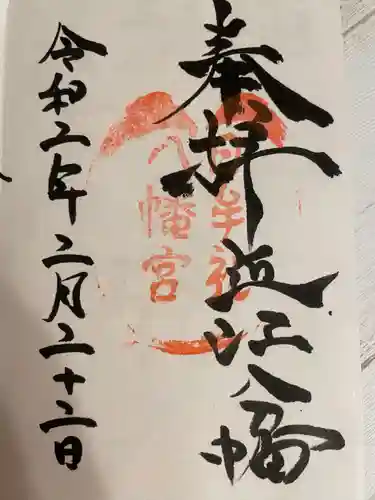 奉拝 近江八幡
日牟禮
八幡宮
令和二年二月二十二日